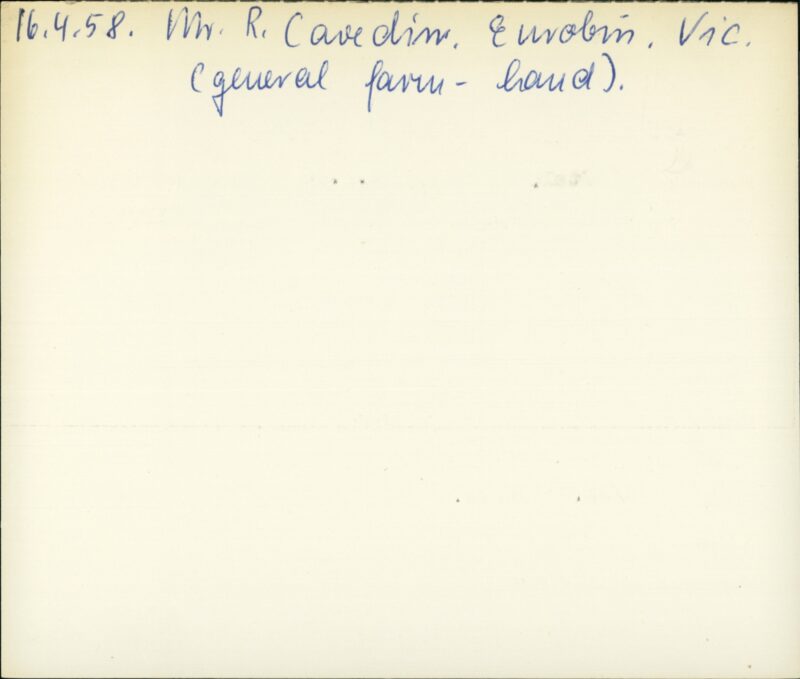 16.4.58. Mr. R. Cavedini. Eurobin. Vic.
(general farm-hand).